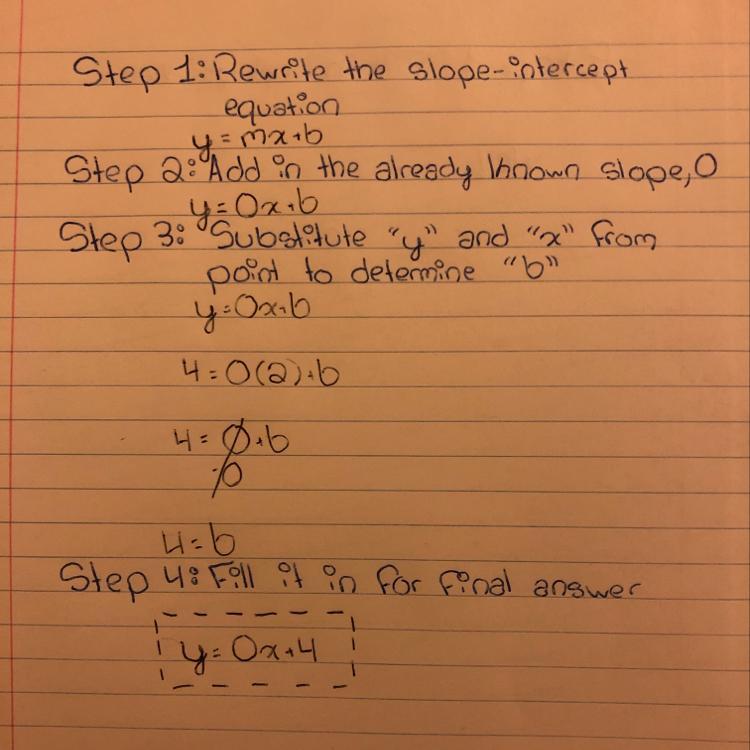 Step 1: Rewrite the slope-intercept
equation
y = mx+b
Step 2: Add in the already known slope, 0
y = 0x+b
Step 3: Substitute "y" and "x" from
point to determine "b"
y = 0x+b
4 = 0(2)+b
4 = 0+b
-0
4 = b
Step 4: Fill it in for final answer
y = 0x+4